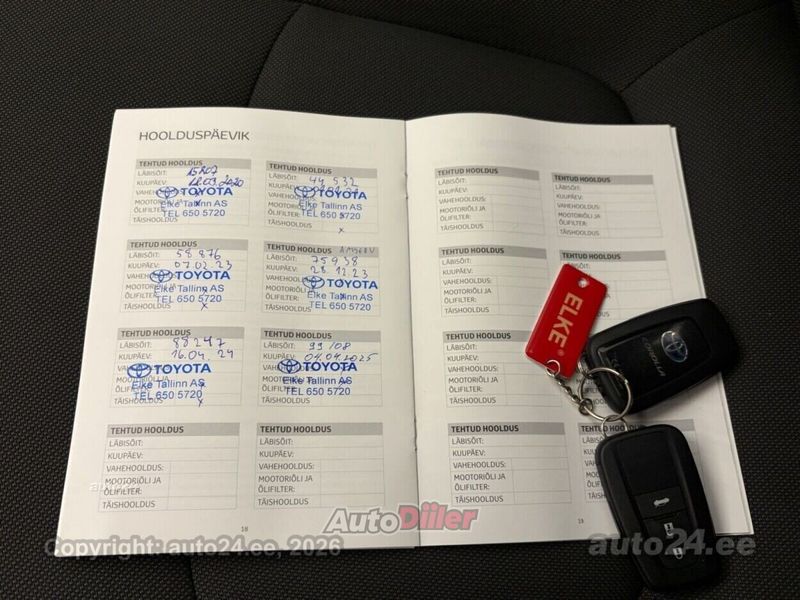 HOOLDUSPÄEVIK
TEHTUD HOOLDUS
LÄBISÕIT:
KUUPÄEV: 2020
VAHEHOOLDUS:
TOYOTA
MOOTORIÕLI JA
ÕLIFILTER:
Elke Tallinn AS
TEL 650 5720
TÄISHOOLDUS x
TEHTUD HOOLDUS
LÄBISÕIT: 44 532
KUUPÄEV:
TOYOTA
MOOTORIÕLI JA
ÕLIFILTER:
Elke Tallinn AS
TEL 650 5720
TÄISHOOLDUS x
TEHTUD HOOLDUS
LÄBISÕIT: 58 876
KUUPÄEV: 07.02.23
VAHEHOOLDUS:
TOYOTA
MOOTORIÕLI JA
ÕLIFILTER:
Elke Tallinn AS
TEL 650 5720
TÄISHOOLDUS x
TEHTUD HOOLDUS
LÄBISÕIT: 75938
KUUPÄEV: 28.12.23
VAHEHOOLDUS:
TOYOTA
MOOTORIÕLI JA
ÕLIFILTER:
Elke Tallinn AS
TEL 650 5720
TÄISHOOLDUS
TEHTUD HOOLDUS
LÄBISÕIT: 88247
KUUPÄEV: 16.04.24
TOYOTA
MOOTORIÕLI JA
ÕLIFILTER:
Elke Tallinn AS
TEL 650 5720
TÄISHOOLDUS x
TEHTUD HOOLDUS
LÄBISÕIT: 99108
KUUPÄEV: 04.04.2025
TOYOTA
MOOTORIÕLI JA
ÕLIFILTER:
Elke Tallinn AS
TEL 650 5720
TÄISHOOLDUS
TEHTUD HOOLDUS
LÄBISÕIT:
KUUPÄEV:
VAHEHOOLDUS:
MOOTORIÕLI JA
ÕLIFILTER:
TÄISHOOLDUS
TEHTUD HOOLDUS
LÄBISÕIT:
KUUPÄEV:
VAHEHOOLDUS:
MOOTORIÕLI JA
ÕLIFILTER:
TÄISHOOLDUS
18
TEHTUD HOOLDUS
LÄBISÕIT:
KUUPÄEV:
VAHEHOOLDUS:
MOOTORIÕLI JA
ÕLIFILTER:
TÄISHOOLDUS
TEHTUD HOOLDUS
LÄBISÕIT:
KUUPÄEV:
VAHEHOOLDUS:
MOOTORIÕLI JA
ÕLIFILTER:
TÄISHOOLDUS
TEHTUD HOOLDUS
LÄBISÕIT:
KUUPÄEV:
VAHEHOOLDUS:
MOOTORIÕLI JA
ÕLIFILTER:
TÄISHOOLDUS
TEHTUD HOOLDUS
TEHTUD HOOLDUS
LÄBISÕIT:
KUUPÄEV:
VAHEHOOLDUS:
MOOTORIÕLI JA
ÕLIFILTER:
TÄISHOOLDUS
TEHTUD HOOLDUS
LÄBISÕIT:
KUUPÄEV:
VAHEHOOLDUS:
MOOTORIÕLI JA
ÕLIFILTER:
TÄISHOOLDUS
TEHTUD
19
ELKE®
COROLLA
AutoDiiler
Copyright: auto24.ee, 2026
auto24.ee